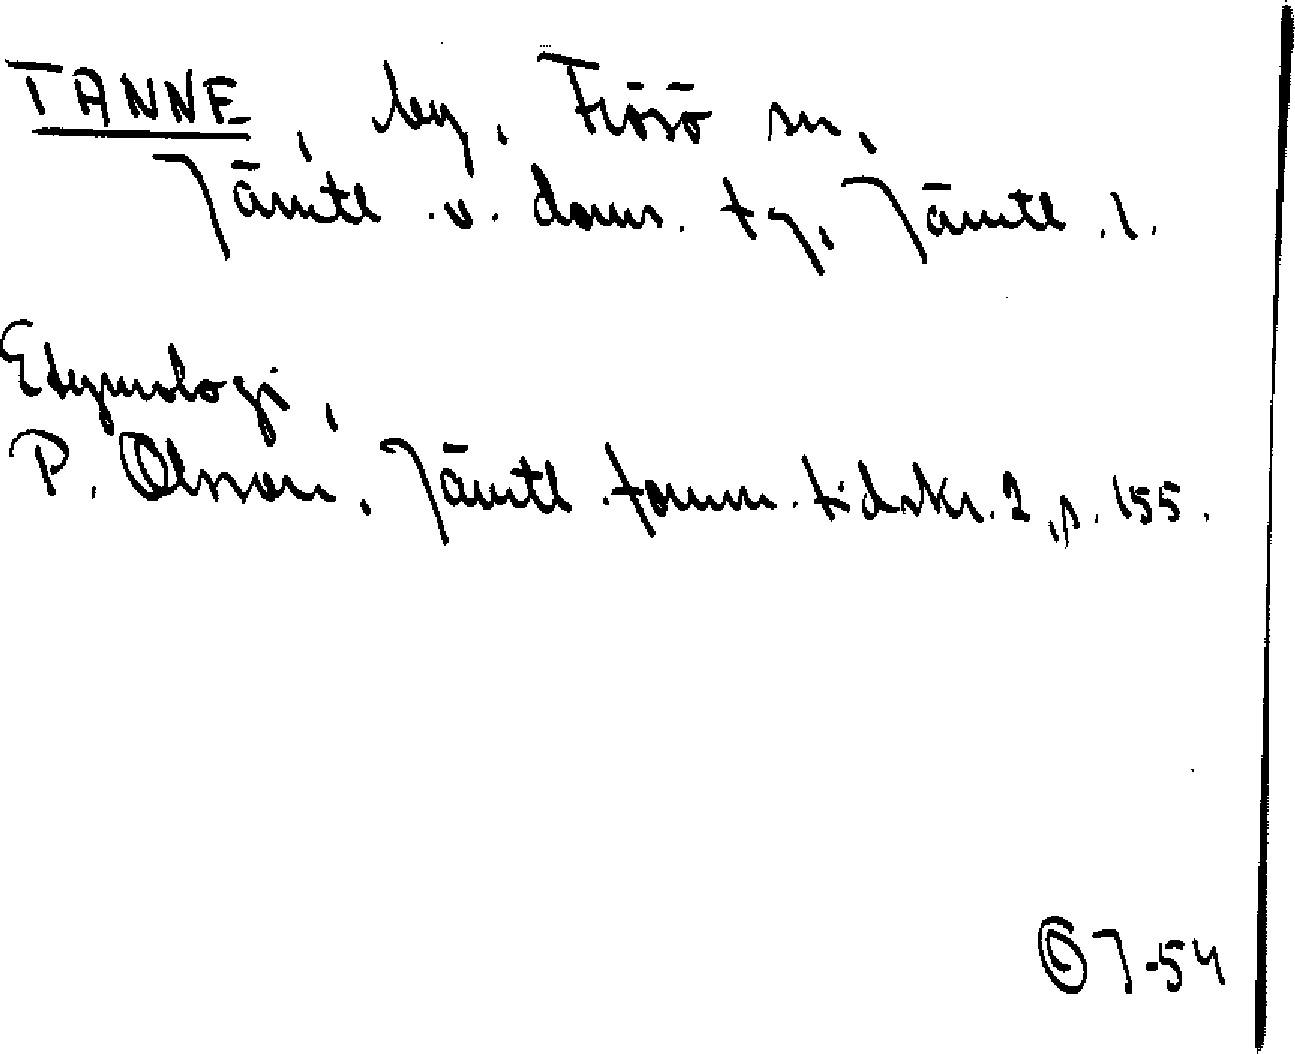 TANNE, by, Frösö sn,
Jämtl. v. doms. tg, Jämtl. l.
Etymologi,
P. Olsson, Jämtl. fornm. tidskr. 2, s. 155.
7-54